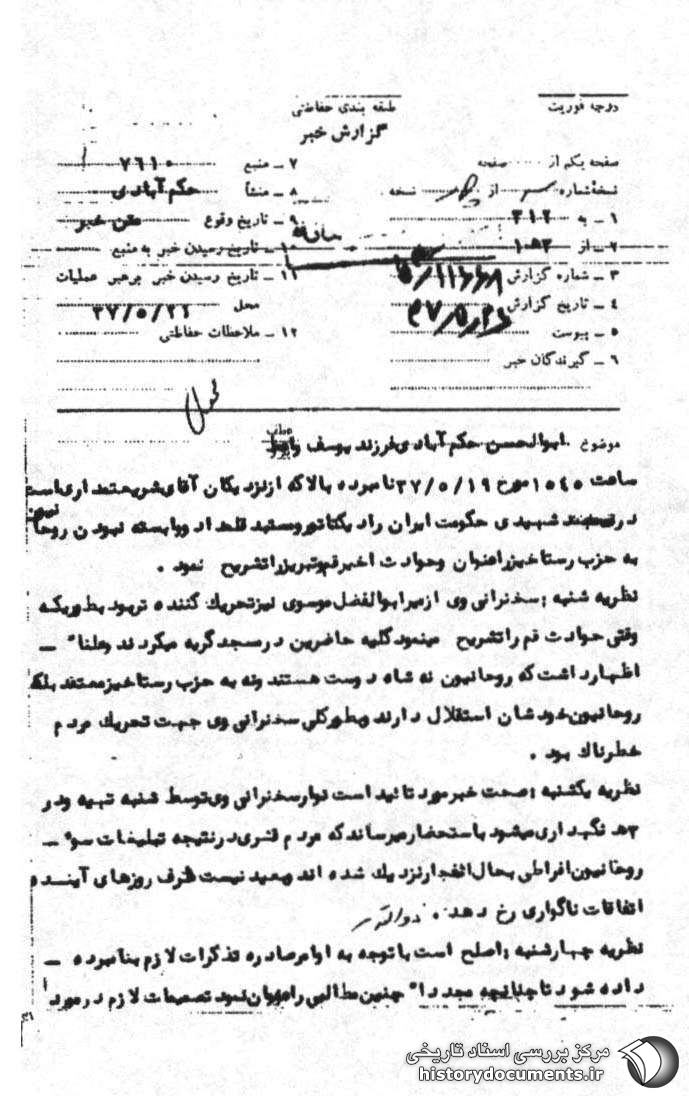 درجه فوریت
طبقه بندی حفاظتی
گزارش خبر
صفحه یکم از صفحه
نسخه شماره سه از چهار نسخه
۱ ـ به ۳۱۲
۲ ـ از
۳ ـ شماره گزارش
۴ ـ تاریخ گزارش
۵ ـ پیوست
۶ ـ گیرندگان خبر
۷ ـ منبع ۷۶۱۰
۸ ـ منشأ حکم آبادی
۹ ـ تاریخ وقوع متن خبر
۱۰ ـ تاریخ رسیدن خبر به منبع
۱۱ ـ تاریخ رسیدن خبر برهبر عملیات
محل ۳۷/۵/۲۲
۱۲ ـ ملاحظات حفاظتی
موضوع ابوالحسن حکم آبادی فرزند یوسف واعظ
ساعت ۱۵۴۰ مورخ ۳۷/۵/۱۹ نامبرده بالا که از نزدیکان آقای شریعتمداری است
در شهیدی حکومت ایران را دیکتاتور و مستبد قلمداد و وابسته نبودن روحانیون
به حزب رستاخیز را عنوان و حوادث اخیر قم و تبریز را تشریح نمود .
نظریه شنبه : سخنرانی وی از میر ابوالفضل موسوی نیز تحریک کننده تر بود بطوریکه
وقتی حوادث قم را تشریح مینمود کلیه حاضرین در مسجد گریه میکردند و علنا" ـ
اظهار داشت که روحانیون نه شاه دوست هستند و نه به حزب رستاخیز معتقد بلکه
روحانیون خودشان استقلال دارند و بطور کلی سخنرانی وی جهت تحریک مردم
خطرناک بود .
نظریه یکشنبه : صحت خبر مورد تائید است نوار سخنرانی وی توسط شنبه تهیه و در
۳هد نگهداری میشود باستحضار میرساند که مردم قشری در نتیجه تبلیغات سوء ـ
روحانیون افراطی بحال انفجار نزدیک شده اند و بعید نیست ظرف روزهای آینده
اتفاقات ناگواری رخ دهد .
نظریه چهارشنبه : اصلح است با توجه به اوامر صادره تذکرات لازم بنامبرده ـ
داده شود تا چنانچه مجددا" چنین مطالبی را عنوان نمود تصمیمات لازم در مورد
مرکز بررسی اسناد تاریخی
historydocuments.ir